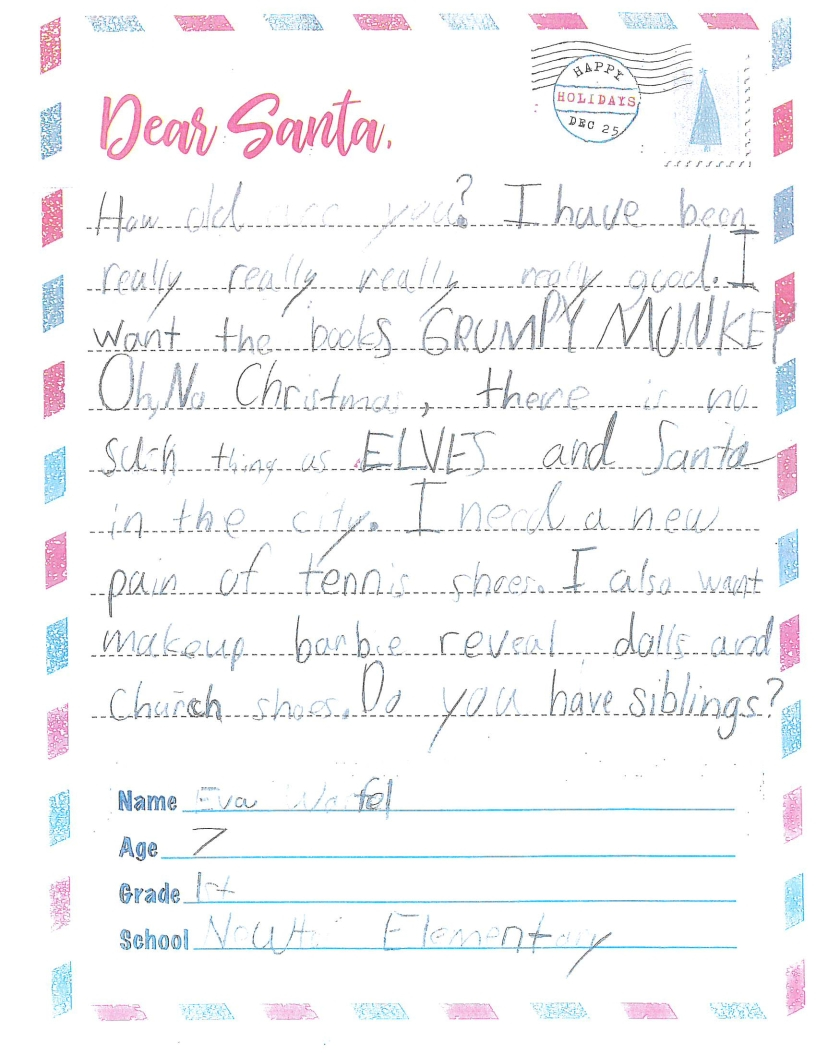 HAPPY
HOLIDAYS
DEC 25
Dear Santa,
How old are you? I have been
really really really really good. I
want the books GRUMPY MUNKEY
Oh, No Christmas, there is no
such thing as ELVES and Santa
in the city. I need a new
pair of tennis shoes. I also want
makeup barbie reveal dolls and
Church shoes. Do you have siblings?
Name Eva
Age 7
Grade 1st
School Elementary